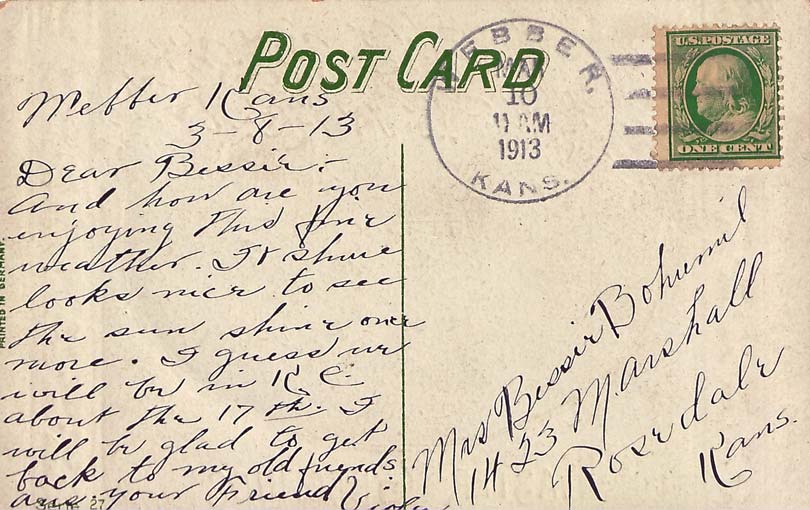 POST CARD
Webber Kans
3-8-13
Dear Bessie:-
And how are you
enjoying this fine
weather. It shure
looks nice to see
the sun shine once
more. I guess we
will be in K C.
about the 17th. I
will be glad to get
back to my old friends.
your Friend
PRINTED IN GERMANY.
27
WEBBER.
MAR
10
11 AM
1913
KANS.
U.S. POSTAGE
ONE CENT
Mrs Bessie Bohumil
1423 Marshall
Rosedale
Kans.